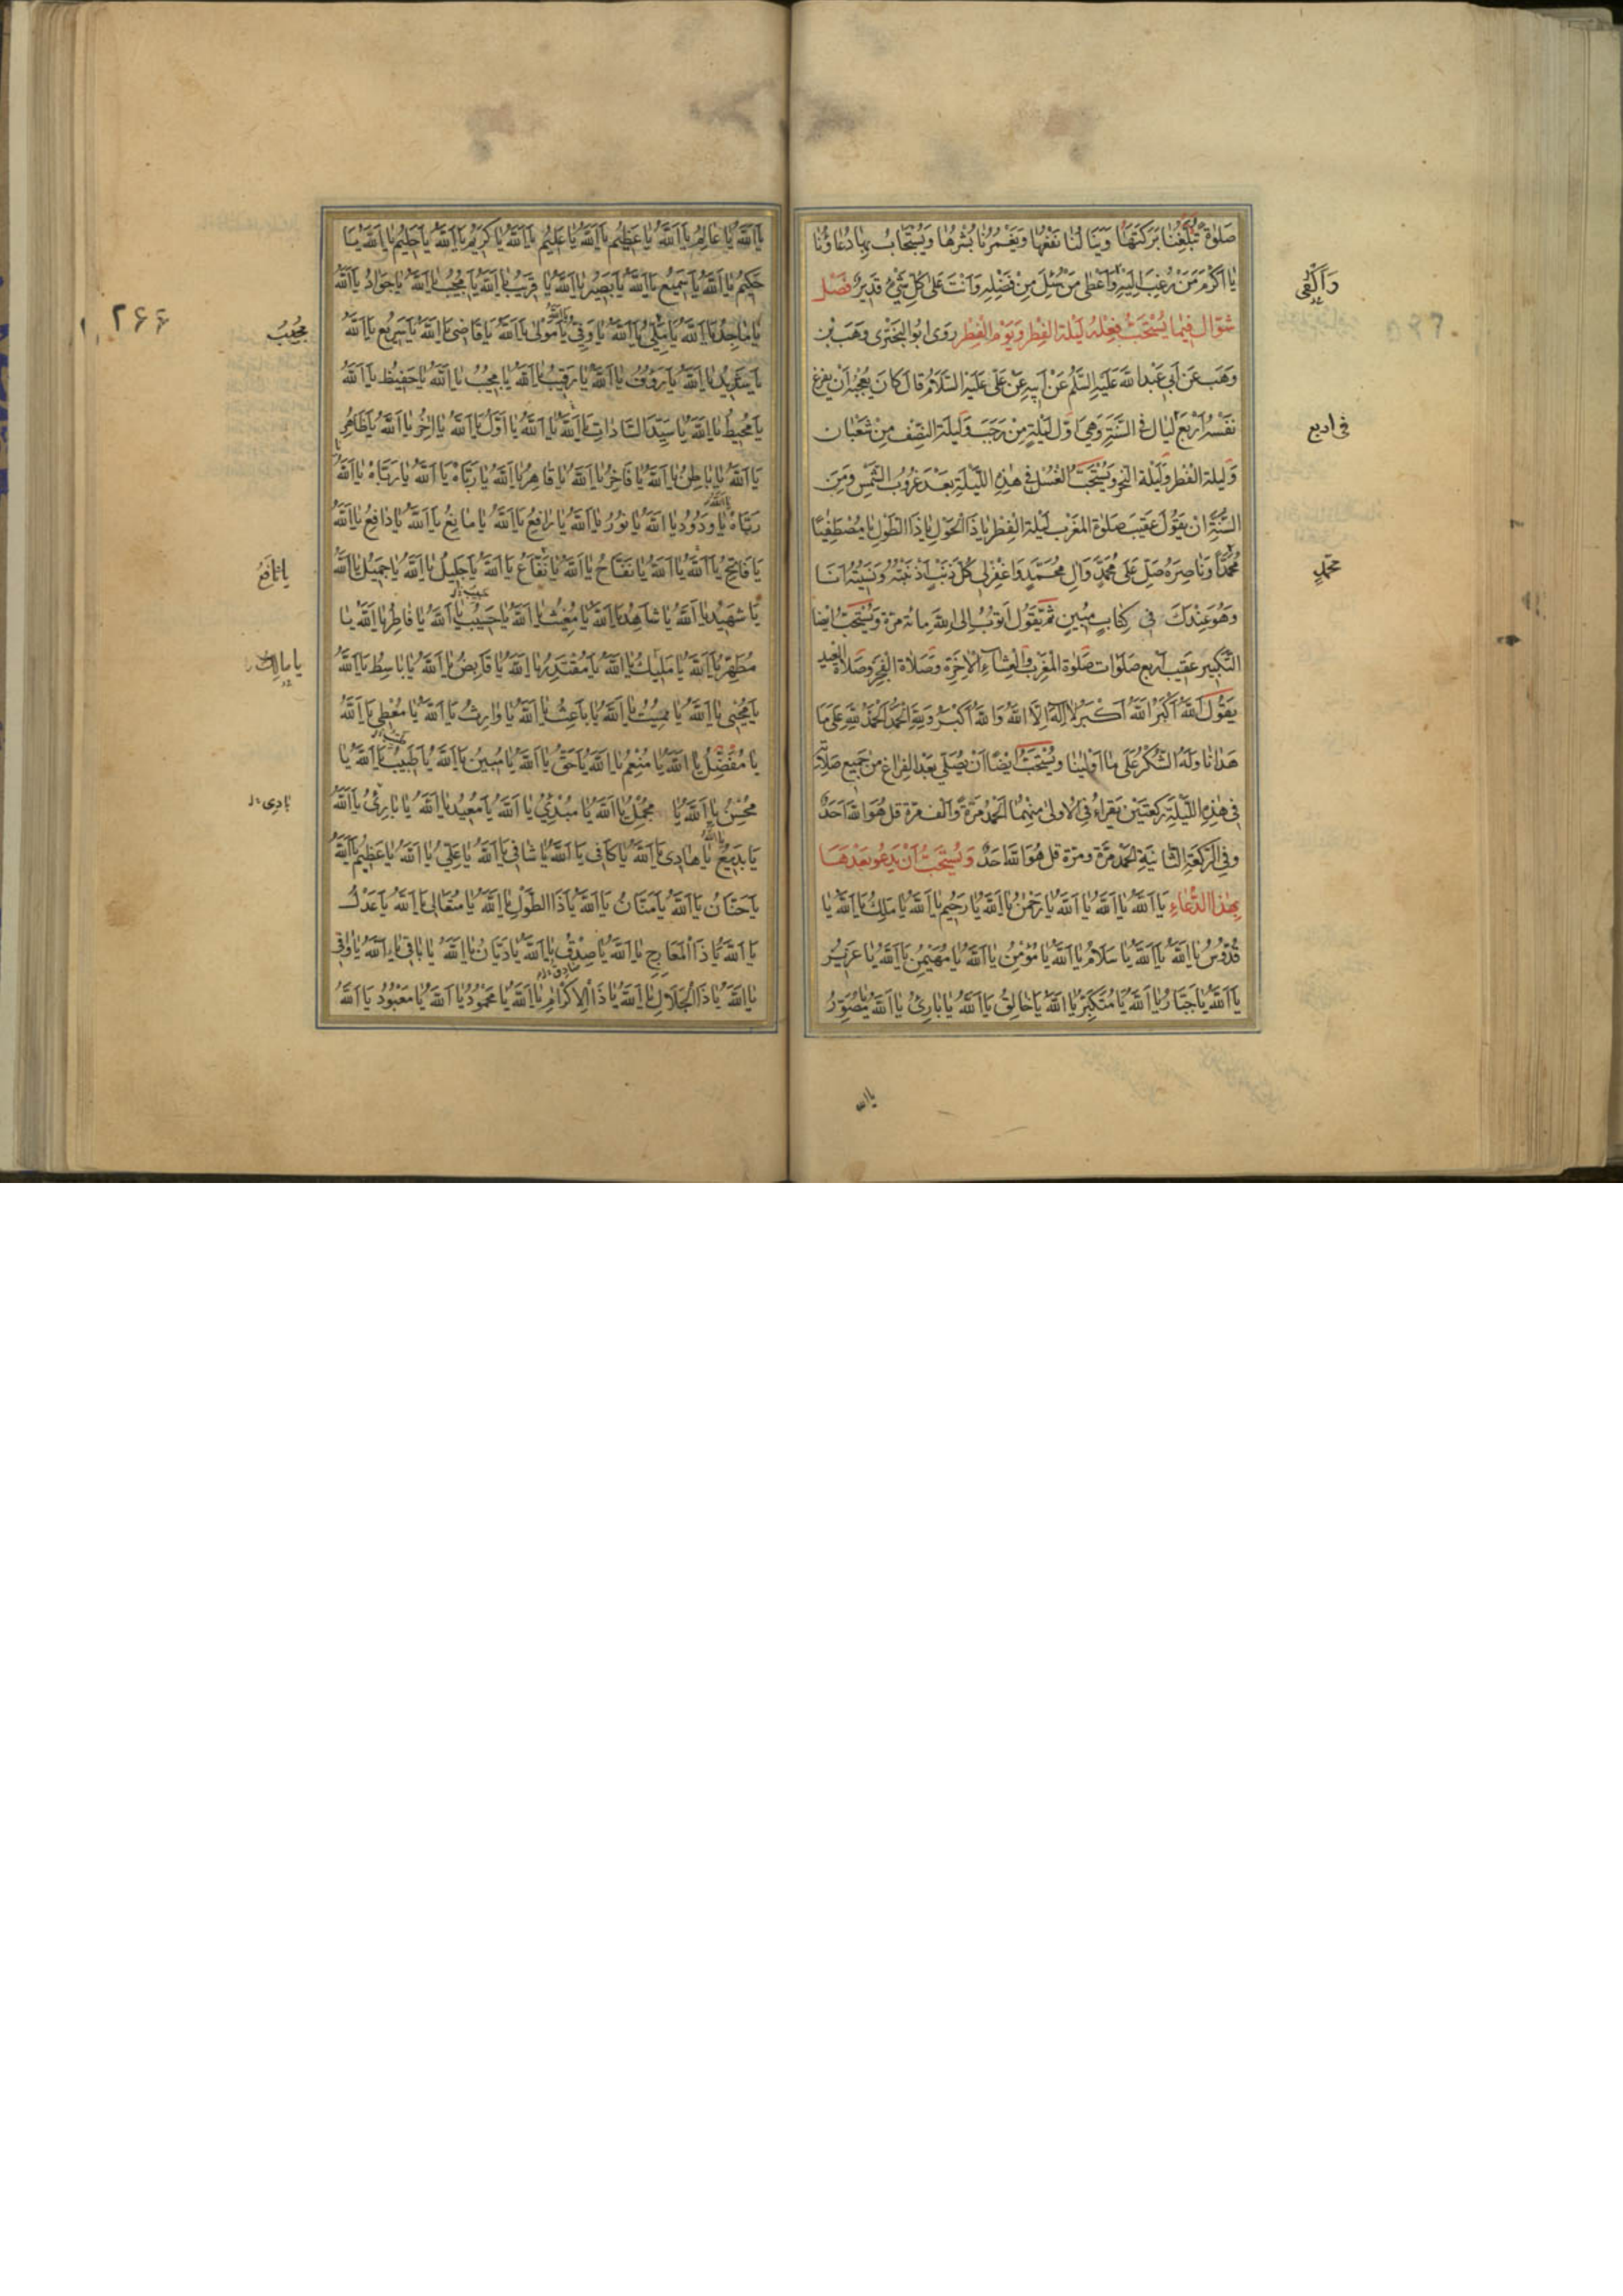 صَلوٰةً تُبَلِّغُنا بَرَكَتَهٰا وَيَنٰالُنٰا نَفْعُهٰا وَيَغْمُرُنٰا بُشْرُهٰا وَيُسْتَجٰابُ بِهٰا دُعٰاؤُنٰا
يٰا اَكْرَمَ مَنْ رُغِبَ اِلَيْهِ وَاَعْطىٰ مَنْ سُئِلَ مِنْ فَضْلِهِ وَاَنْتَ عَلىٰ كُلِّ شَيْءٍ قَديرٌ فَصْل
شوّال فيما يُسْتَحَبُّ فِعْلُهُ لَيْلة الفِطر وَيَوْم الفِطْر رَوى ابُوا البَخْتَرى وَهَب بْن
وَهَب عَن اَبى عَبْدِ اللّٰه عَلَيْهِ السَّلٰم عَنْ اَبيهِ عَنْ عَلى عَلَيْهِ السَّلامُ قالَ كٰانَ يُعْجِبُهُ اَنْ يفرغَ
نَفْسَهُ اَرْبَعَ لَيٰالٍ فى السَّنَةِ وَهِىَ اوّل لَيْلَةٍ مِنْ رَجَبَ وَلَيْلَة النِّصْف مِنْ شَعْبٰان
وَلَيلة الفطر وَلَيْلة النحر وَيُسْتَحَبُّ الغُسْل فى هٰذِهِ اللَّيْلَةِ بَعْدَ غرُوبِ الشَّمْسِ وَمِنَ
السُّنَّةِ انْ يَقُولَ عَقيبَ صَلوٰة المَغْرب لَيْلَة الْفِطْر يٰا ذَا الْحَوْلِ يٰا ذَا الطَّوْلِ يٰا مُصْطَفِيًا
مُحَمَّدًا وَنٰاصِرَهُ صَلِّ عَلىٰ مُحَمَّدٍ وَآلِ مُحَمَّدٍ وَاغْفِرْ لى كُلَّ ذَنْبٍ اَذْنَبْتُهُ وَنَسيتُهُ اَنَا
وَهُوَ عِنْدَكَ فى كِتٰابٍ مبُينٍ ثُمَّ يَقُول اَتوُبُ اِلى اللّٰهِ مائة مَرّة وَيُسْتَحَبّ ايضا
التَّكْبير عَقيبَ اَربع صَلوٰات صَلوٰة المَغْرِب وَالْعِشٰاءِ الْاٰخِرَة وَصَلاٰة الفَجْر وَصَلاٰة العيد
يَقُولَ اَللّٰهُ اَكْبَرُ اَللّٰهُ اَكْبَرُ لاٰ اِلٰهَ اِلاَّ اللّٰهُ وَاللّٰهُ اَكْبَرُ وَلِلّٰهِ الْحَمْدُ اَلْحَمْدُ لِلّٰهِ عَلىٰ مٰا
هَدٰانٰا وَلَهُ الشُّكْرُ عَلىٰ مٰا اَوْلٰينٰا ويُسْتَحَبُّ ايضًا اَنْ يُصَلّى بَعْدَ الفراغ مِن جَميعِ صَلاٰته
فى هٰذِهِ اللَّيْلَةِ رَكعَتَيْنِ يَقراءُ فى الْاولىٰ مِنْهُما الْحَمْدُ مَرَّةً وَاَلْفَ مَرّة قل هُوَ اللّٰه اَحَدٌ
وَفى الرَّكْعَةِ الثّٰانيَةِ الْحَمْدُ مَرَّة ومرّة قل هُوَ اللّٰه احَدٌ وَيُسْتَحَبُّ اَنْ يَدْعُو بَعْدَهَا
بِهٰذَا الدُّعٰاءِ يٰا اَللّٰهُ يٰا اَللّٰهُ يٰا اَللّٰهُ يٰا رَحْمٰنُ يٰا اَللّٰهُ يٰا رَحيمُ يٰا اَللّٰهُ يٰا مَلِكُ يٰا اَللّٰهُ يٰا
قُدُّوسُ يٰا اَللّٰهُ يٰا اَللّٰهُ يٰا سَلاٰمُ يٰا اَللّٰهُ يٰا مُؤْمِنُ يٰا اَللّٰهُ يٰا مُهَيْمِنُ يٰا اَللّٰهُ يٰا عَزيزُ
يٰا اَللّٰهُ يٰا جَبّٰارُ يٰا اَللّٰهُ يٰا مُتَكَبِّرُ يٰا اَللّٰهُ يٰا خٰالِقُ يٰا اَللّٰهُ يٰا بٰارِئُ يٰا اَللّٰهُ يٰا مُصَوِّرُ
يا الله
فى اربع
محمّدٍ
يٰا اَللّٰهُ يٰا عٰالِمُ يٰا اَللّٰهُ يٰا عَظيمُ يٰا اَللّٰهُ يٰا عَليمُ يٰا اَللّٰهُ يٰا كَريمُ يٰا اَللّٰهُ يٰا حَليمُ يٰا اَللّٰهُ يٰا
حَكيمُ يٰا اَللّٰهُ يٰا سَميعُ يٰا اَللّٰهُ يٰا بَصيرُ يٰا اَللّٰهُ يٰا قَريبُ يٰا اَللّٰهُ يٰا مُجيبُ يٰا اَللّٰهُ يٰا جَوٰادُ يٰا اَللّٰهُ
يٰا مٰاجِدُ يٰا اَللّٰهُ يٰا مَلِىُّ يٰا اَللّٰهُ يٰا وَفِىُّ يٰا اَللّٰهُ يٰا مَوْلىٰ يٰا اَللّٰهُ يٰا قٰاضى يٰا اَللّٰهُ يٰا سَريعُ يٰا اَللّٰهُ
يٰا شَديدُ يٰا اَللّٰهُ يٰا رَؤُفُ يٰا اَللّٰهُ يٰا رَقيبُ يٰا اَللّٰهُ يٰا مُجيبُ يٰا اَللّٰهُ يٰا حَفيظُ يٰا اَللّٰهُ
يٰا مُحيطُ يٰا اَللّٰهُ يٰا سَيِّدَ السّٰادٰاتِ يٰا اَللّٰهُ يٰا اَللّٰهُ يٰا اَوَّلُ يٰا اَللّٰهُ يٰا اٰخِرُ يٰا اَللّٰهُ يٰا ظٰاهِرُ
يٰا اَللّٰهُ يٰا بٰاطِنُ يٰا اَللّٰهُ يٰا فٰاخِرُ يٰا اَللّٰهُ يٰا قٰاهِرُ يٰا اَللّٰهُ يٰا رَبّٰاهُ يٰا اَللّٰهُ يٰا رَبّٰاهُ يٰا اَللّٰهُ يٰا
رَبّٰاهُ يٰا اَللّٰهُ يٰا وَدُودُ يٰا اَللّٰهُ يٰا نُورُ يٰا اَللّٰهُ يٰا رٰافِعُ يٰا اَللّٰهُ يٰا مٰانِعُ يٰا اَللّٰهُ يٰا دٰافِعُ يٰا اَللّٰهُ
يٰا فٰاتِحُ يٰا اَللّٰهُ يٰا اَللّٰهُ يٰا نَفّٰاحُ يٰا اَللّٰهُ يٰا نَفّٰاعُ يٰا اَللّٰهُ يٰا جَليلُ يٰا اَللّٰهُ يٰا جَميلُ يٰا اَللّٰهُ
يٰا شَهيدُ يٰا اَللّٰهُ يٰا شٰاهِدُ يٰا اَللّٰهُ يٰا مُغيثُ يٰا اَللّٰهُ يٰا حَبيبُ يٰا اَللّٰهُ يٰا فٰاطِرُ يٰا اَللّٰهُ يٰا
مُطَهِّرُ يٰا اَللّٰهُ يٰا مَليكُ يٰا اَللّٰهُ يٰا مُقْتَدِرُ يٰا اَللّٰهُ يٰا قٰابِضُ يٰا اَللّٰهُ يٰا بٰاسِطُ يٰا اَللّٰهُ
يٰا مُحْيى يٰا اَللّٰهُ يٰا مُميتُ يٰا اَللّٰهُ يٰا بٰاعِثُ يٰا اَللّٰهُ يٰا وٰارِثُ يٰا اَللّٰهُ يٰا مُعْطى يٰا اَللّٰهُ
يٰا مُفْضِلُ يٰا اَللّٰهُ يٰا مُنْعِمُ يٰا اَللّٰهُ يٰا حَقُّ يٰا اَللّٰهُ يٰا مُبينُ يٰا اَللّٰهُ يٰا طَبيبُ يٰا اَللّٰهُ يٰا
مُحْسِنُ يٰا اَللّٰهُ يٰا مُجْمِلُ يٰا اَللّٰهُ يٰا مُبْدِئُ يٰا اَللّٰهُ يٰا مُعيدُ يٰا اَللّٰهُ يٰا بٰارِئُ يٰا اَللّٰهُ
يٰا بَديعُ يٰا اَللّٰهُ يٰا هٰادى يٰا اَللّٰهُ يٰا كٰافى يٰا اَللّٰهُ يٰا شٰافى يٰا اَللّٰهُ يٰا عَلِىُّ يٰا اَللّٰهُ يٰا عَظيمُ يٰا اَللّٰهُ
يٰا حَنّٰانُ يٰا اَللّٰهُ يٰا مَنّٰانُ يٰا اَللّٰهُ يٰا ذَا الطَّوْلِ يٰا اَللّٰهُ يٰا مُتَعٰالى يٰا اَللّٰهُ يٰا عَدْلُ
يٰا اَللّٰهُ يٰا ذَا الْمَعٰارِجِ يٰا اَللّٰهُ يٰا صِدْقُ يٰا اَللّٰهُ يٰا دَيّٰانُ يٰا اَللّٰهُ يٰا بٰاقى يٰا اَللّٰهُ يٰا وٰاقى
يٰا اَللّٰهُ يٰا ذَا الْجَلاٰلِ يٰا اَللّٰهُ يٰا ذَا الْاِكْرٰامِ يٰا اَللّٰهُ يٰا مَحْمُودُ يٰا اَللّٰهُ يٰا مَعْبُودُ يٰا اَللّٰهُ
يا نافعُ
يا مالك
بادى
۲۶۶